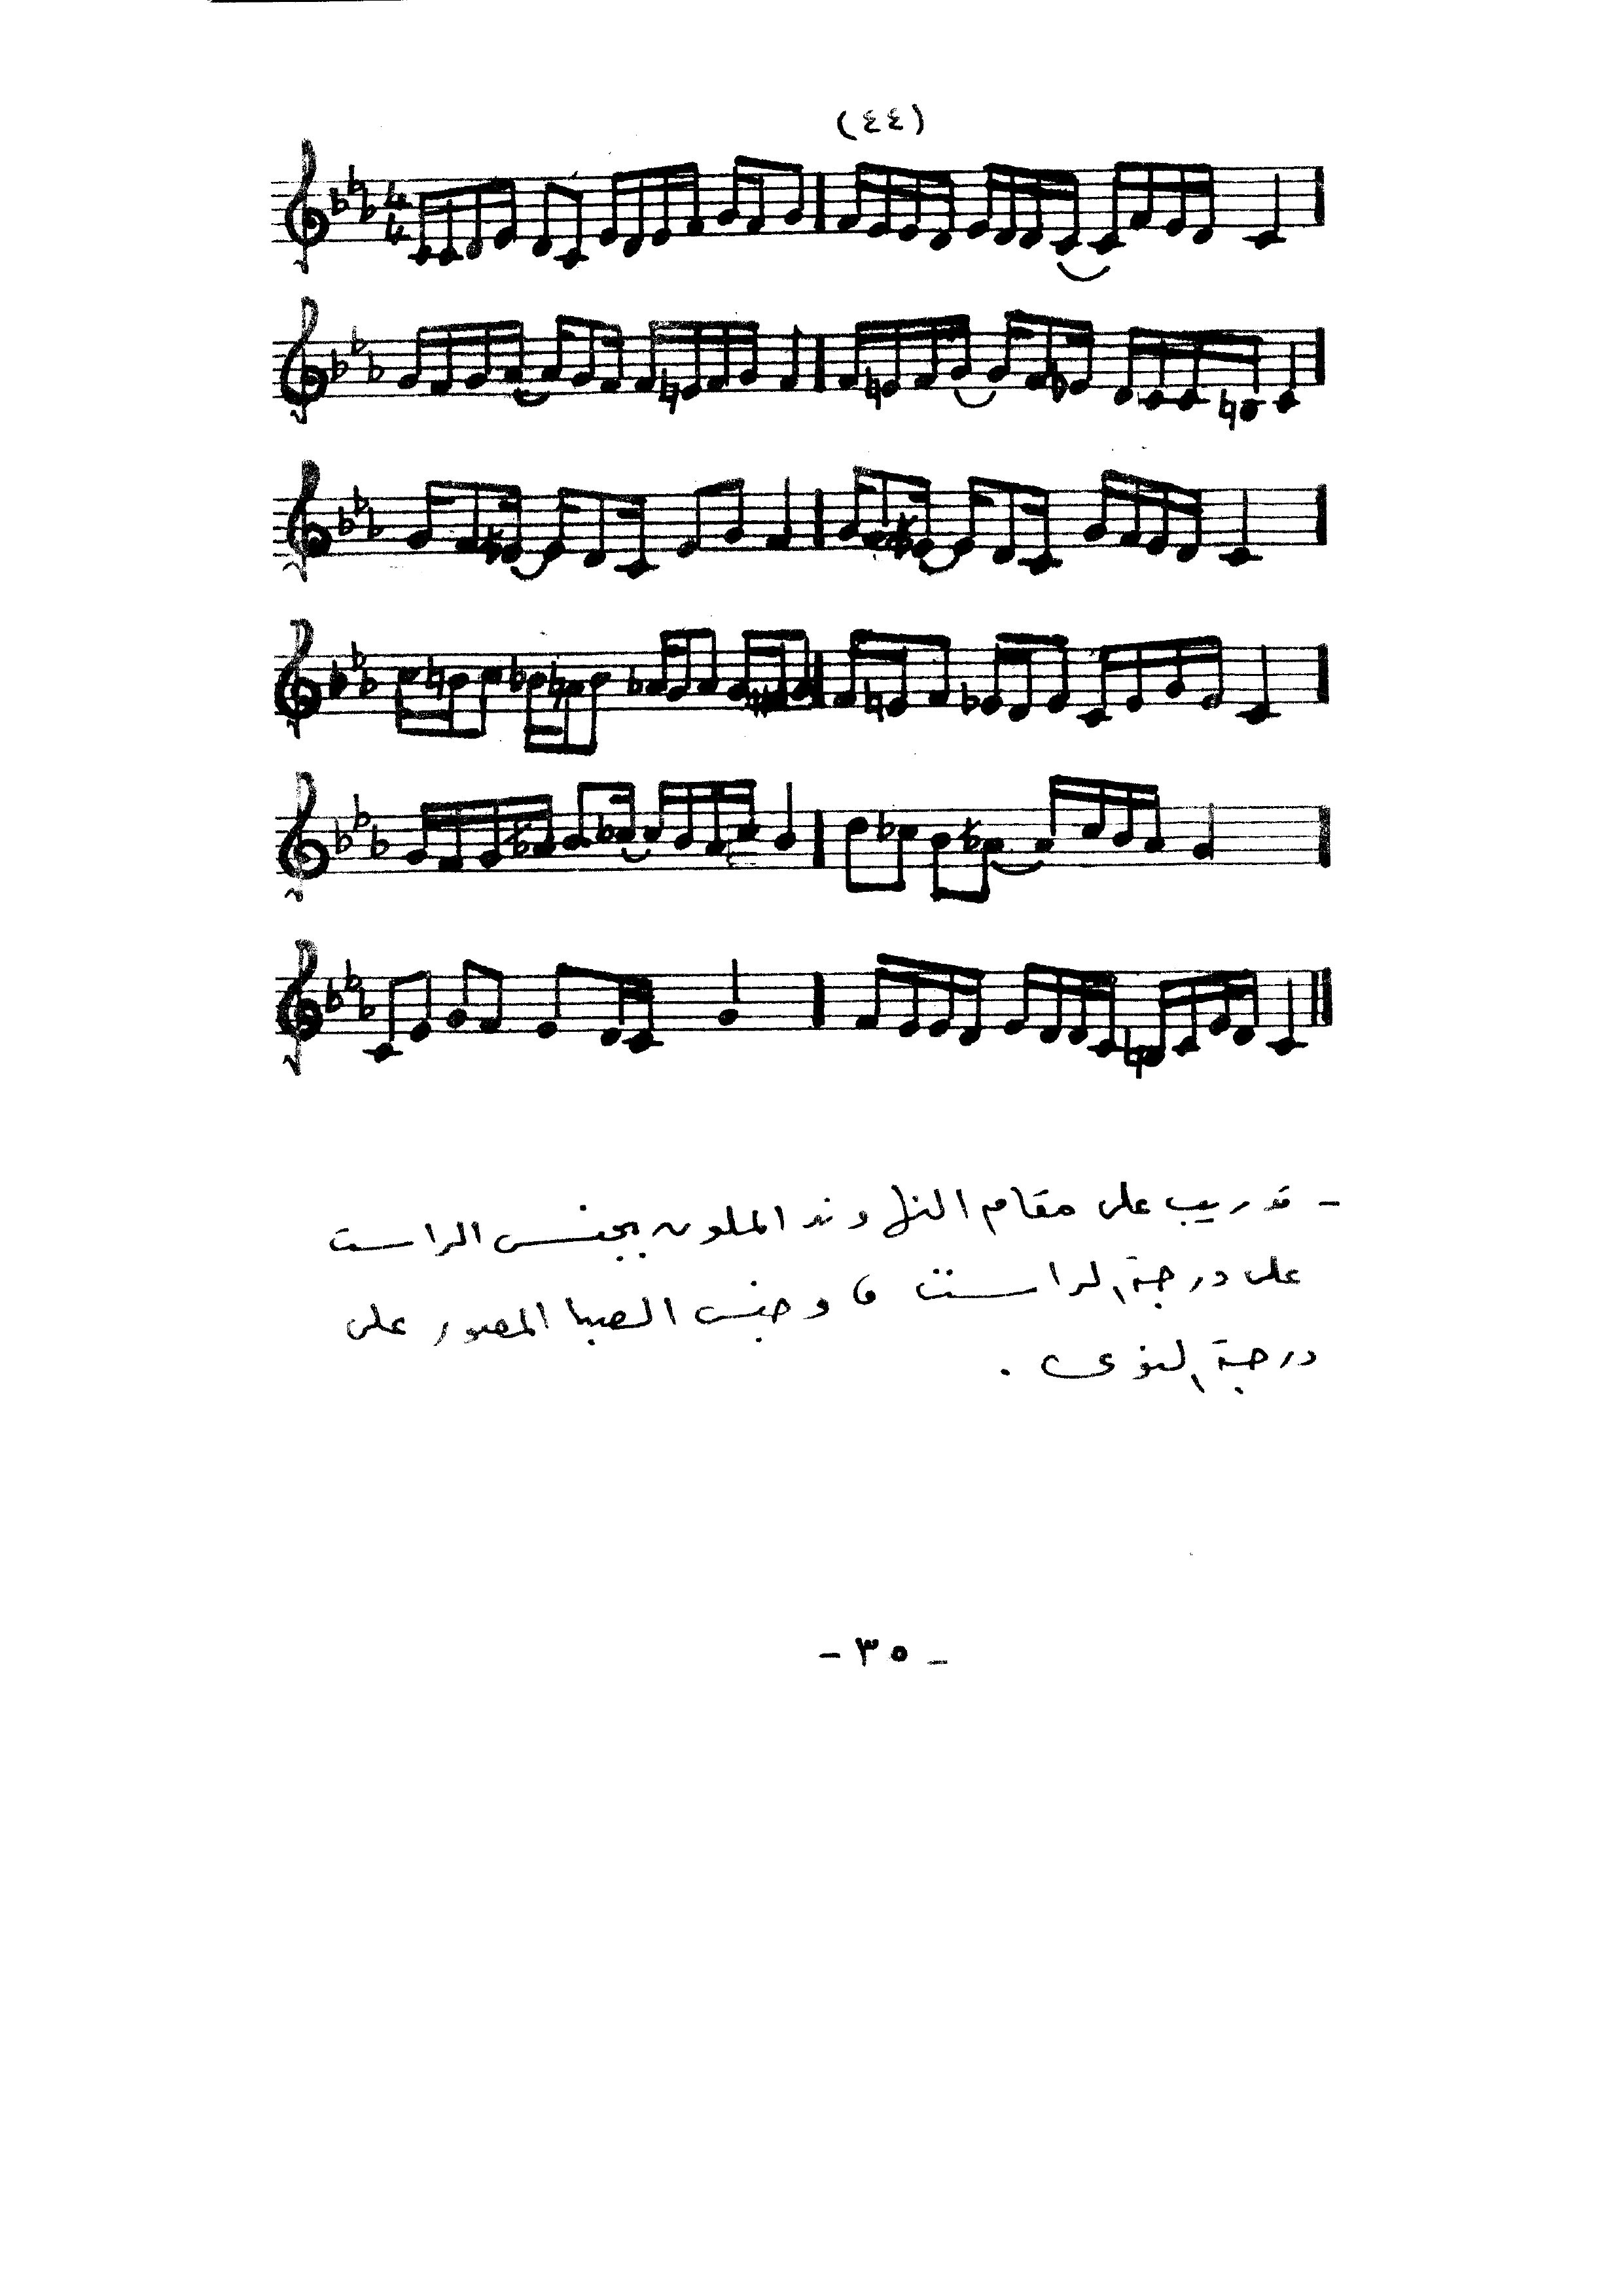 (٤٤)
4
4
- تدريب على مقام النهاوند الملون بجنس الراست
على درجة الراست ، وجنس الصبا المصور على
درجة النوى .
- ٣٥ -